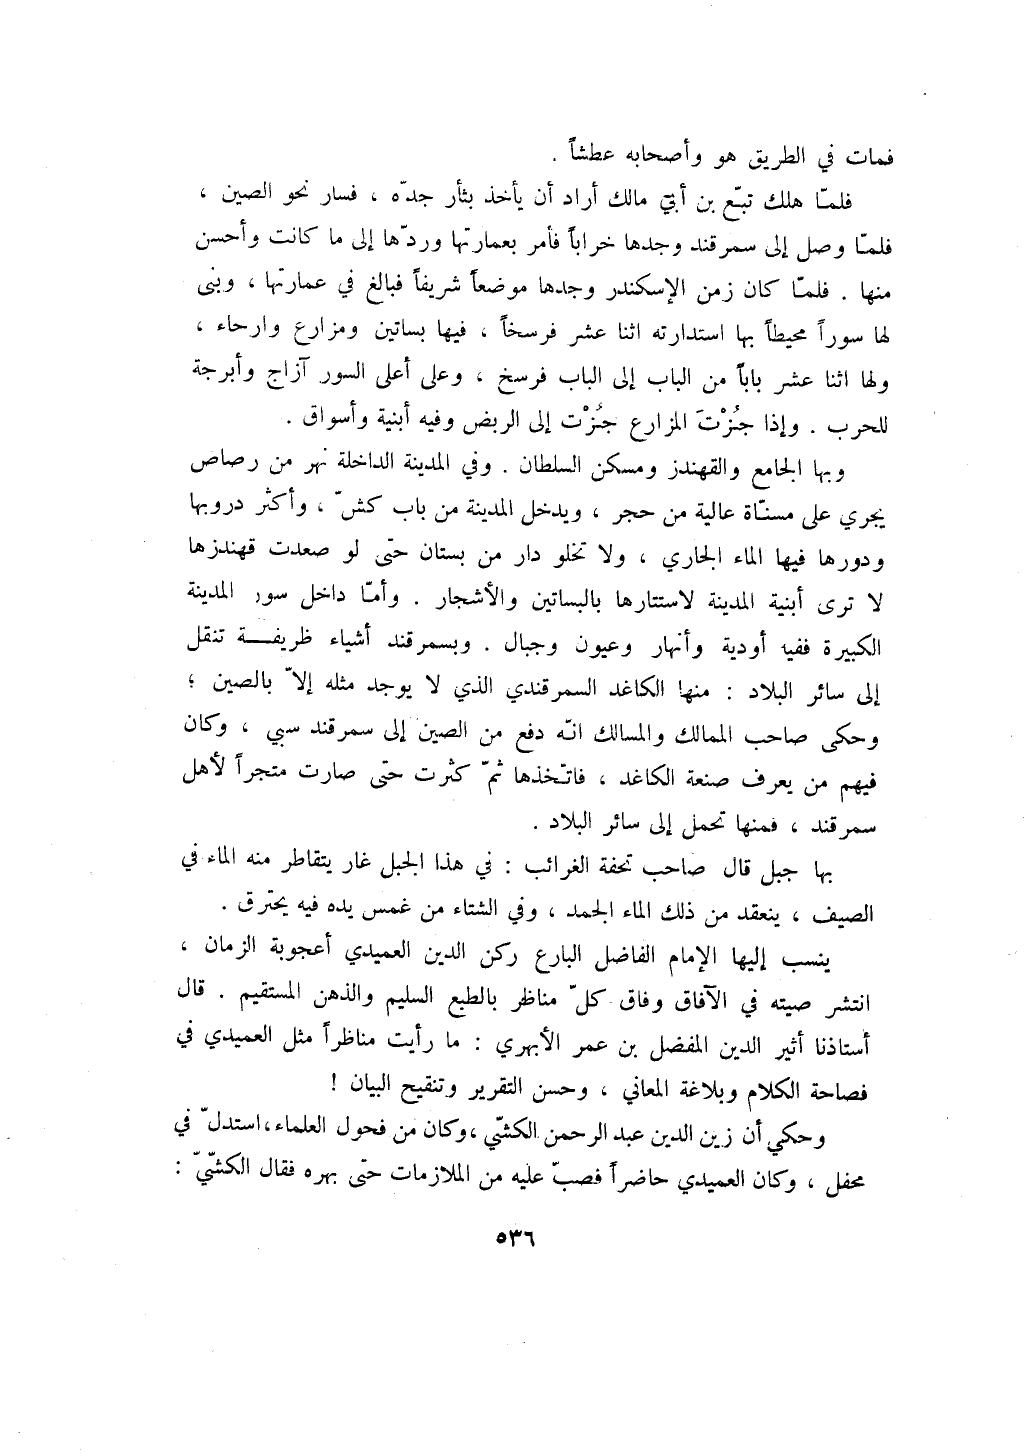 فمات في الطريق هو وأصحابه عطشاً .
فلمّا هلك تبّع بن أبي مالك أراد أن يأخذ بثأر جدّه ، فسار نحو الصين ،
فلمّا وصل إلى سمرقند وجدها خراباً فأمر بعمارتها وردّها إلى ما كانت وأحسن
منها . فلمّا كان زمن الإسكندر وجدها موضعاً شريفاً فبالغ في عمارتها ، وبنى
لها سوراً محيطاً بها استدارته اثنا عشر فرسخاً ، فيها بساتين ومزارع وارحاء ،
ولها اثنا عشر باباً من الباب إلى الباب فرسخ ، وعلى أعلى السور آزاج وأبرجة
للحرب . وإذا جُزْتَ المزارع جُزْت إلى الربض وفيه أبنية وأسواق .
وبها الجامع والقهندز ومسكن السلطان . وفي المدينة الداخلة نهر من رصاص
يجري على مسنّاة عالية من حجر ، ويدخل المدينة من باب كشّ ، وأكثر دروبها
ودورها فيها الماء الجاري ، ولا تخلو دار من بستان حتى لو صعدت قهندزها
لا ترى أبنية المدينة لاستتارها بالبساتين والأشجار . وأمّا داخل سور المدينة
الكبيرة ففيه أودية وأنهار وعيون وجبال . وبسمرقند أشياء ظريفــة تنقل
إلى سائر البلاد : منها الكاغد السمرقندي الذي لا يوجد مثله إلاّ بالصين ؛
وحكى صاحب الممالك والمسالك انّه دفع من الصين إلى سمرقند سبي ، وكان
فيهم من يعرف صنعة الكاغد ، فاتّخذها ثمّ كثرت حتى صارت متجراً لأهل
سمرقند ، فمنها تحمل إلى سائر البلاد .
بها جبل قال صاحب تحفة الغرائب : في هذا الجبل غار يتقاطر منه الماء في
الصيف ، ينعقد من ذلك الماء الجمد ، وفي الشتاء من غمس يده فيه يحترق .
ينسب إليها الإمام الفاضل البارع ركن الدين العميدي أعجوبة الزمان ،
انتشر صيته في الآفاق وفاق كلّ مناظر بالطبع السليم والذهن المستقيم . قال
أستاذنا أثير الدين المفضل بن عمر الأبهري : ما رأيت مناظراً مثل العميدي في
فصاحة الكلام وبلاغة المعاني ، وحسن التقرير وتنقيح البيان !
وحكي أن زين الدين عبد الرحمن الكشّي ، وكان من فحول العلماء، استدلّ في
محفل ، وكان العميدي حاضراً فصبّ عليه من الملازمات حتى بهره فقال الكشّيّ :
٥٣٦